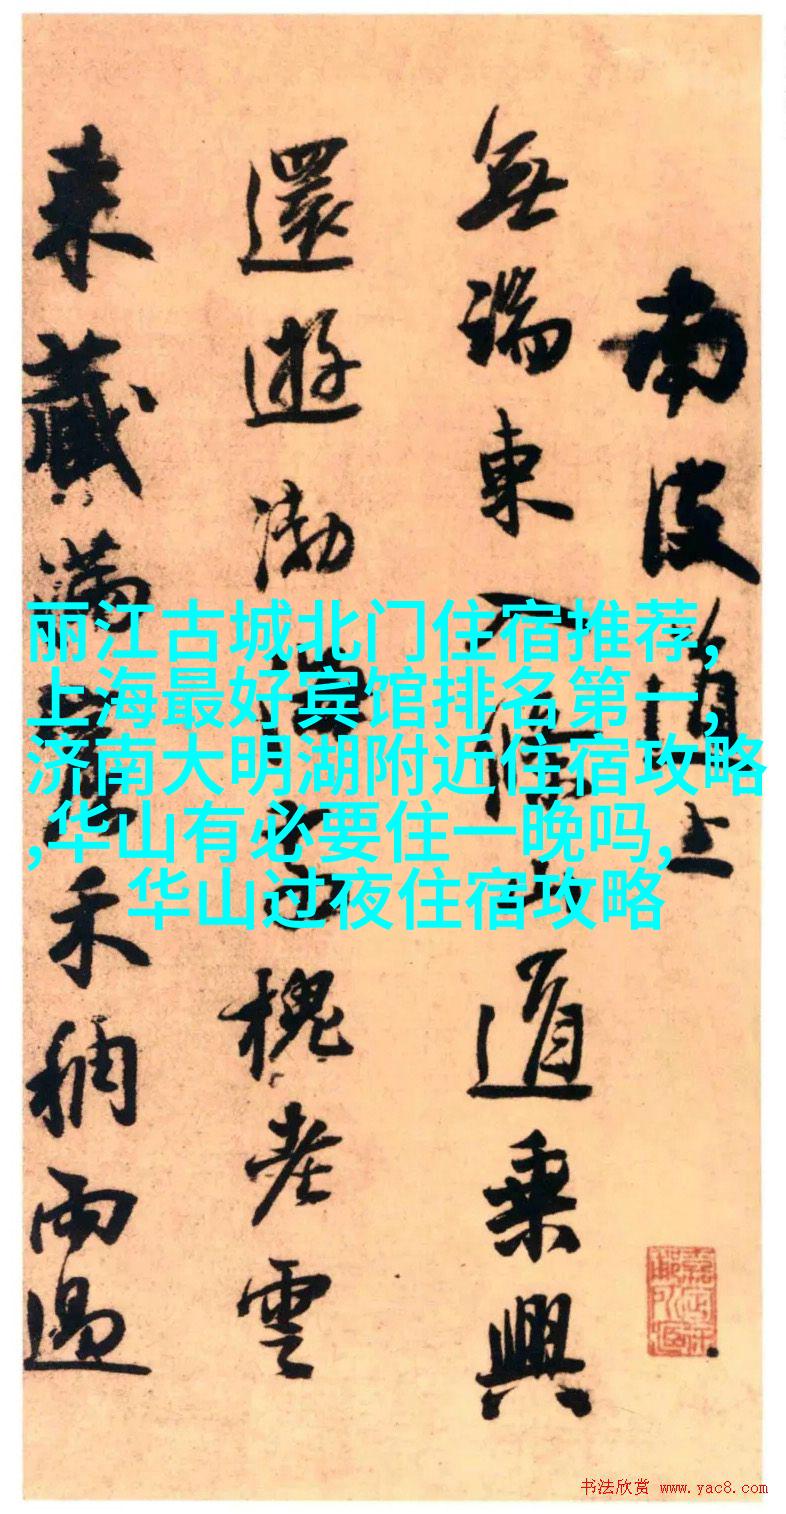 南皮道上
無端東入道乘興
還遊渤海槐老雲
來藏滿禾稠雨過
丽江古城北门住宿推荐,
上海最好宾馆排名第一,
济南大明湖附近住宿攻略
,华山有必要住一晚吗,
华山过夜住宿攻略
书法欣赏 www.yac8.com